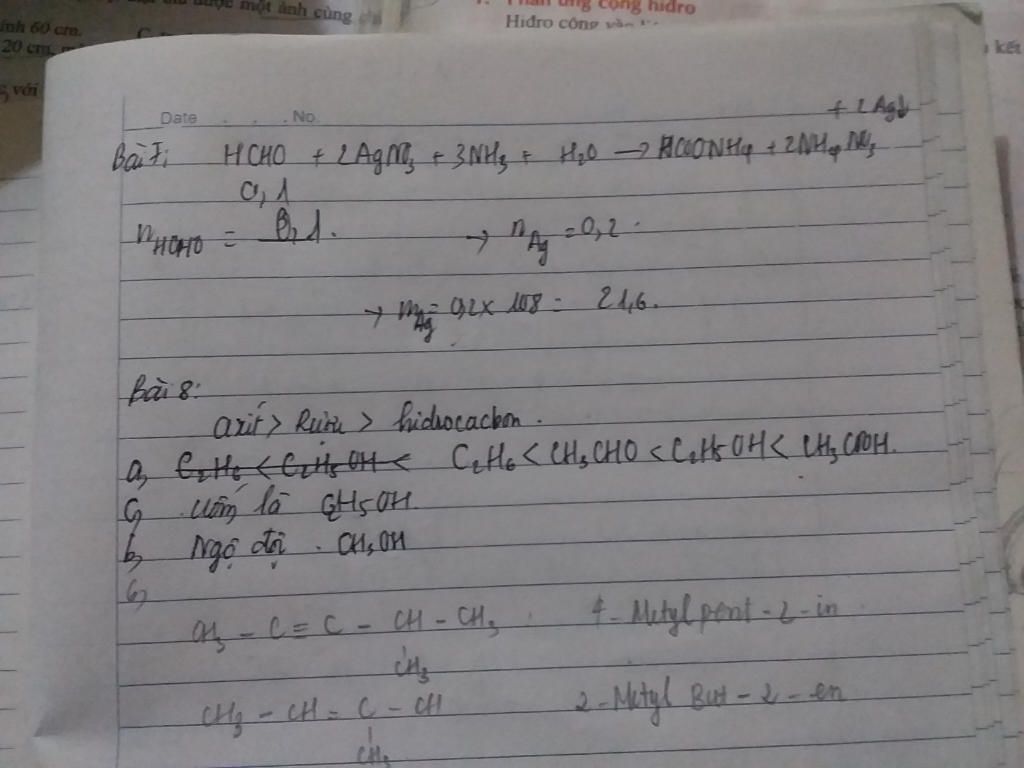 được một ảnh cùng
ính 60 cm.
20 cm,
với
Phản ứng cộng hiđro
Hiđro cộng vào
kết
Date . . . No.
+ 2Ag↓
Bài 7: HCHO + 2AgNO₃ + 3NH₃ + H₂O → HCOONH₄ + 2NH₄NO₃
0,1
nHCHO = 0,1. → nAg = 0,2.
→ mAg = 0,2 x 108 = 21,6.
Bài 8:
axit > Rượu > hidrocacbon.
a, C₂H₆ < C₂H₅OH < C₂H₆ < CH₃CHO < C₂H₅OH < CH₃COOH.
C, uống là C₂H₅OH.
b, Ngộ độc . CH₃OH
C,
CH₃ - C ≡ C - CH - CH₃. 4-Metyl pent-2-in
CH₃
CH₃ - CH = C - CH 2-Metyl But-2-en
CH₃